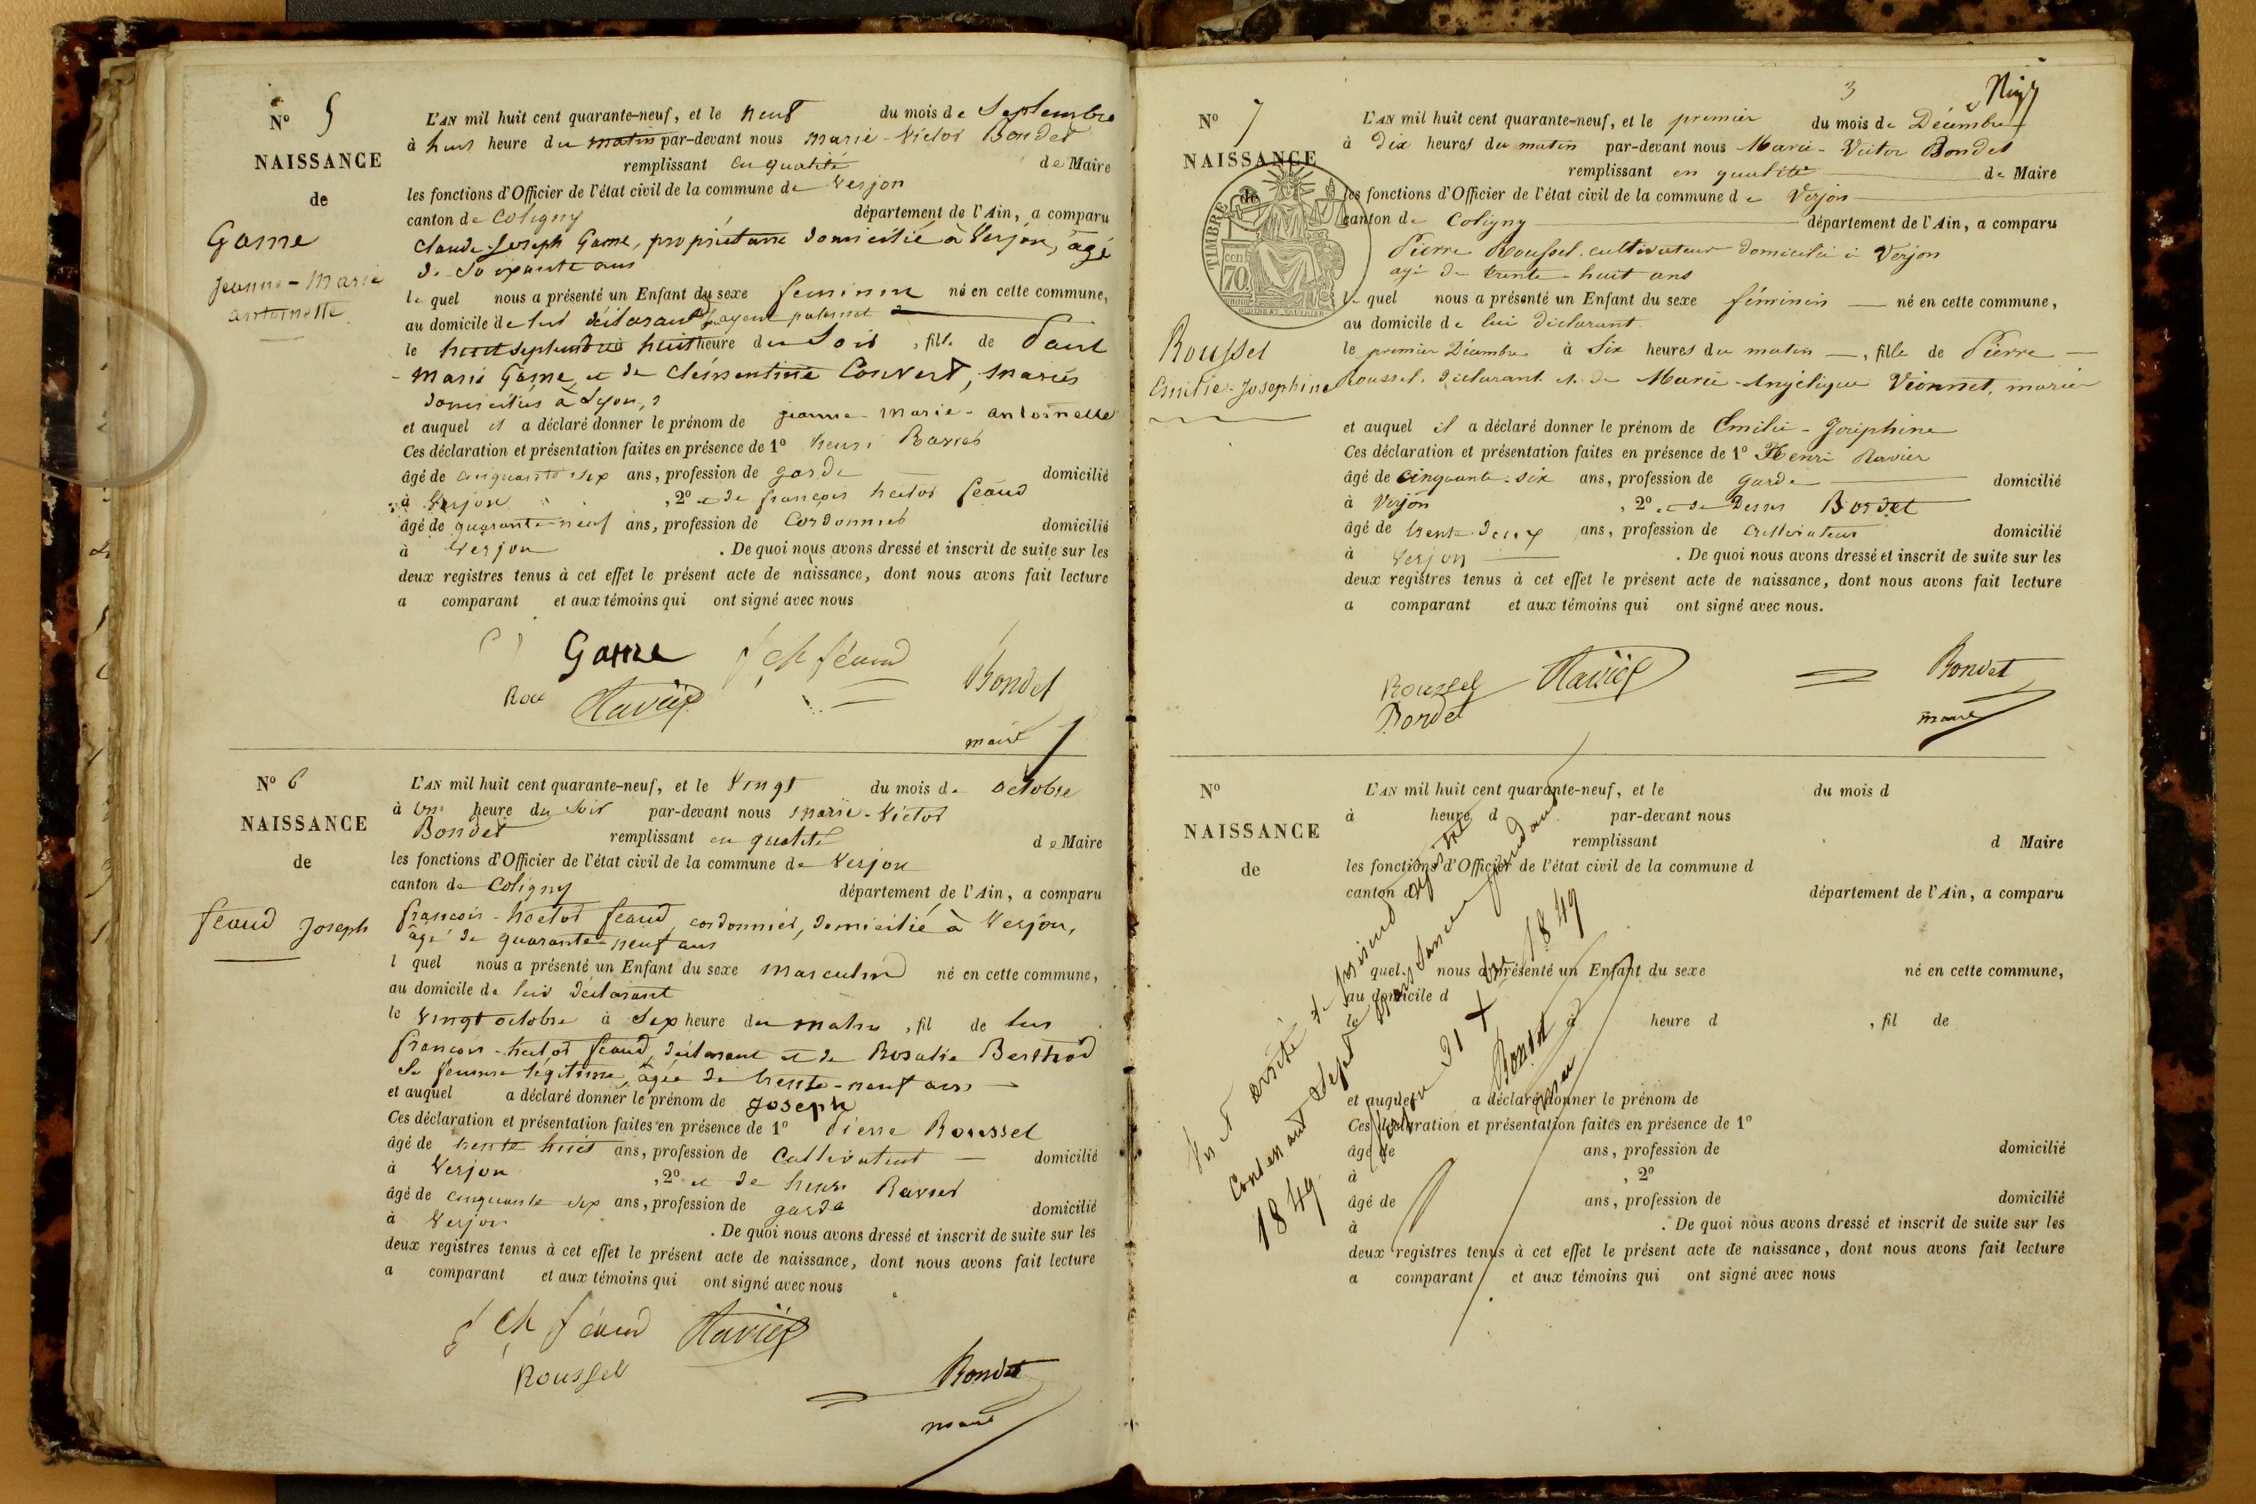 N° 5
NAISSANCE
de
Game
jeanne-marie
antoinette
L'AN mil huit cent quarante-neuf, et le neuf du mois de Septembre
à huit heure du matin par-devant nous marie-Victor Bondet
remplissant en qualité de Maire
les fonctions d'Officier de l'état civil de la commune de Verjon
canton de Coligny département de l'Ain, a comparu
Claude-Joseph Game, propriétaire domicilié à Verjon, âgé
de soixante ans
le quel nous a présenté un Enfant du sexe feminin né en cette commune,
au domicile de lui déclarant ayeul paternel
le huit septembre à huit heure du Soir, fille de Paul
marie Game, et de clémentine Convert, mariés
domiciliés à Lyon,
et auquel il a déclaré donner le prénom de jeanne-marie-antoinette
Ces déclaration et présentation faites en présence de 1° henri Ravier
âgé de cinquante six ans, profession de garde domicilié
à Verjon, 2° et de françois hector feaud
âgé de quarante-neuf ans, profession de Cordonnier domicilié
à Verjon. De quoi nous avons dressé et inscrit de suite sur les
deux registres tenus à cet effet le présent acte de naissance, dont nous avons fait lecture
a comparant et aux témoins qui ont signé avec nous
Game féaud Bondet
Rou Ravier
maire
N° 6
NAISSANCE
de
feaud Joseph
L'AN mil huit cent quarante-neuf, et le Vingt du mois de octobre
à une heure du soir par-devant nous marie-Victor
Bondet remplissant en qualité de Maire
les fonctions d'Officier de l'état civil de la commune de Verjon
canton de Coligny département de l'Ain, a comparu
françois-hector feaud, cordonnier, domicilié à Verjon,
âgé de quarante-neuf ans
l quel nous a présenté un Enfant du sexe masculin né en cette commune,
au domicile de lui déclarant
le Vingt octobre à six heure du matin, fil de lui
françois-hector feaud, déclarant et de Rosalie Berthod
Sa femme légitime, âgée de trente-neuf ans
et auquel a déclaré donner le prénom de joseph
Ces déclaration et présentation faites en présence de 1° Pierre Roussel
âgé de trente huit ans, profession de Cultivateur domicilié
à Verjon, 2° et de henri Ravier
âgé de cinquante six ans, profession de garde domicilié
à Verjon. De quoi nous avons dressé et inscrit de suite sur les
deux registres tenus à cet effet le présent acte de naissance, dont nous avons fait lecture
a comparant et aux témoins qui ont signé avec nous
féaud Ravier
Roussel
Bondet
maire
3
N° 7
NAISSANCE
de
TIMBRE
70
Roussel
Emilie-Josephine
L'AN mil huit cent quarante-neuf, et le premier du mois de Décembre
à Dix heures du matin par-devant nous Marie-Victor Bondet
remplissant en qualité de Maire
les fonctions d'Officier de l'état civil de la commune de Verjon
canton de Coligny département de l'Ain, a comparu
Pierre Roussel cultivateur domicilié à Verjon
agé de trente-huit ans
le quel nous a présenté un Enfant du sexe féminin né en cette commune,
au domicile de lui déclarant
le premier Décembre à Six heures du matin, fille de Pierre
Roussel, déclarant et de Marie-Angélique Vionnet, mariés
et auquel il a déclaré donner le prénom de Emilie-Joséphine
Ces déclaration et présentation faites en présence de 1° Henri Ravier
âgé de cinquante-six ans, profession de garde domicilié
à Verjon, 2° et de Bordet
âgé de trente-deux ans, profession de cultivateur domicilié
à Verjon. De quoi nous avons dressé et inscrit de suite sur les
deux registres tenus à cet effet le présent acte de naissance, dont nous avons fait lecture
a comparant et aux témoins qui ont signé avec nous.
Roussel Ravier Bondet
Bordet maire
N°
NAISSANCE
de
L'AN mil huit cent quarante-neuf, et le du mois d
à heure d par-devant nous
remplissant d Maire
les fonctions d'Officier de l'état civil de la commune d
canton d département de l'Ain, a comparu
quel nous a présenté un Enfant du sexe né en cette commune,
au domicile d
le à heure d, fil de
et auquel a déclaré donner le prénom de
Ces déclaration et présentation faites en présence de 1°
âgé de ans, profession de domicilié
à, 2°
âgé de ans, profession de domicilié
à. De quoi nous avons dressé et inscrit de suite sur les
deux registres tenus à cet effet le présent acte de naissance, dont nous avons fait lecture
a comparant et aux témoins qui ont signé avec nous
Vu et arrêté le présent registre
contenant Sept naissances pendant
1849
Verjon 31 Xbre 1849
Bondet
maire